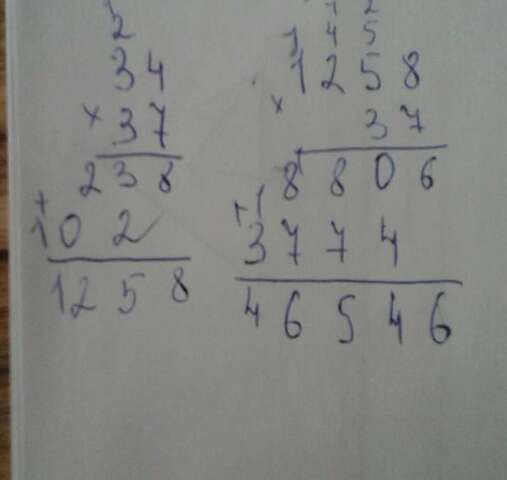 2
34
× 37
238
+
102
1258
1 2
1 4 5
1258
×
37
8806
+1
3774
46546